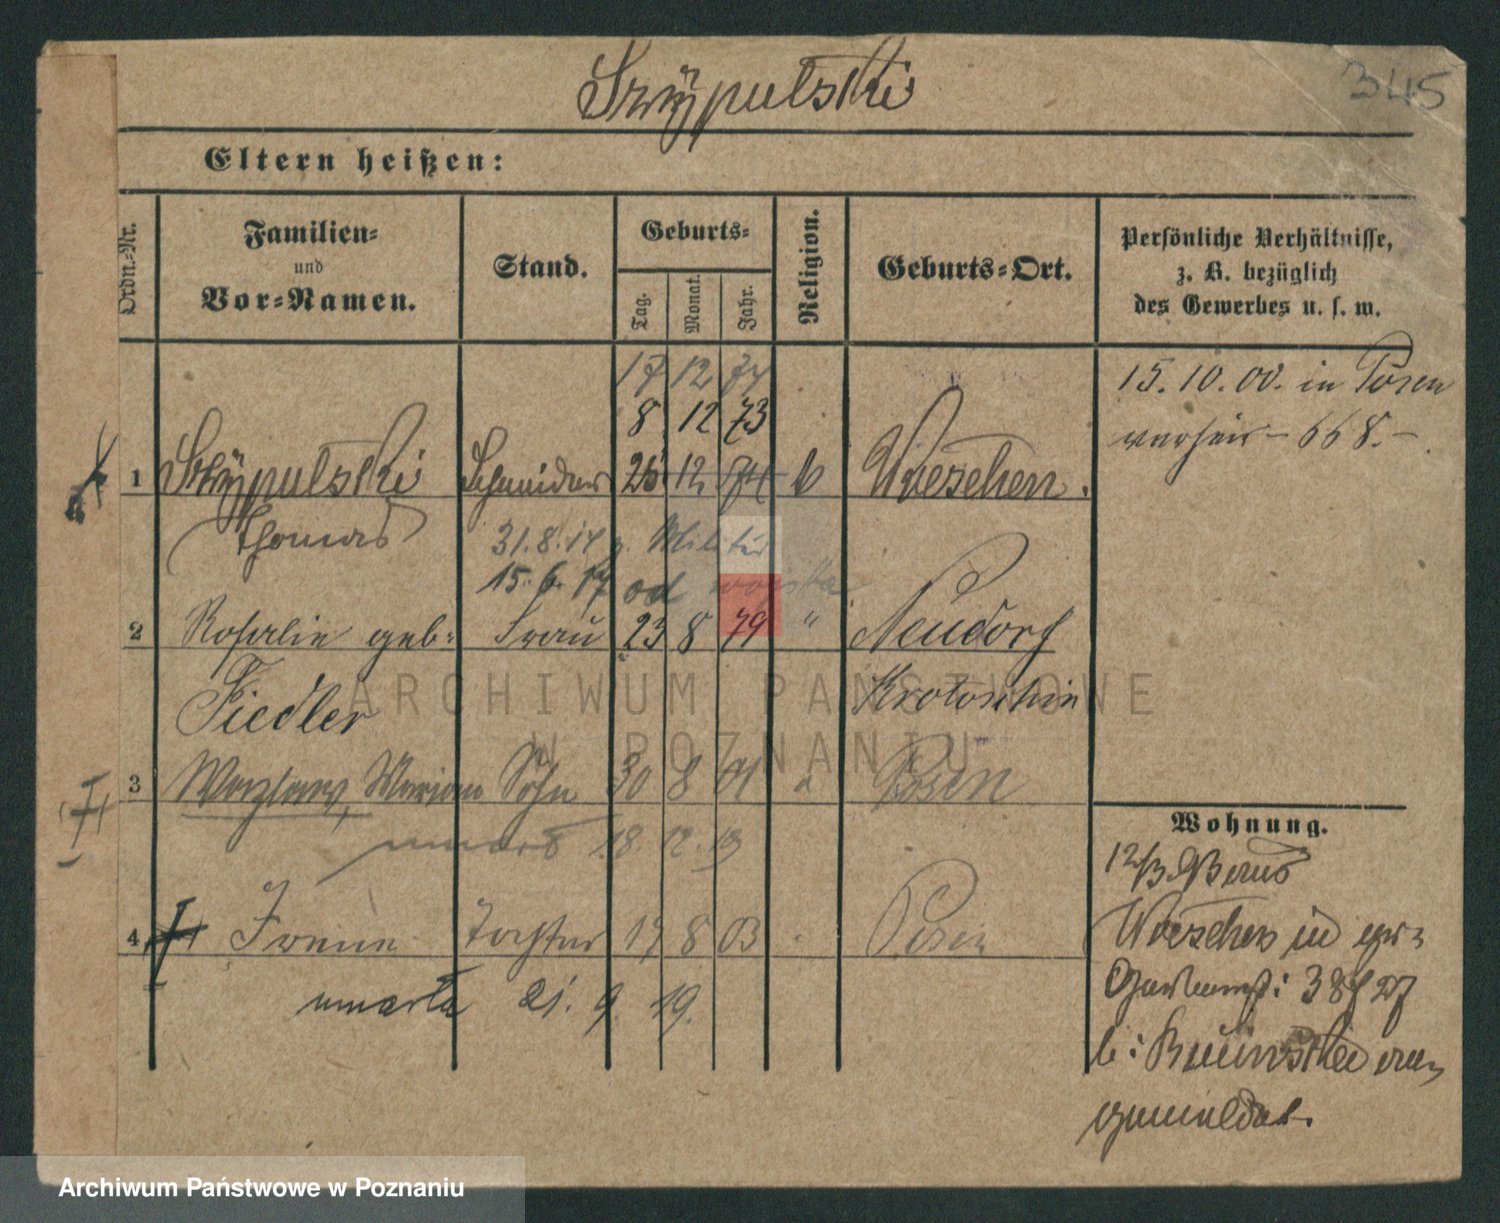 Szÿpulski
345
Eltern heißen:
Ordn.-Nr.
Familien-
und
Vor-Namen.
Stand.
Geburts-
Tag.
Monat.
Jahr.
Religion.
Geburts-Ort.
Persönliche Verhältnisse,
z. B. bezüglich
des Gewerbes u. s. w.
17 12 74
8 12 73
1 Szÿpulski Schneider 25 12 74 k Wreschen.
Thomas
31.8.14 z. Militär
15. 6. 17 od wojska
2 Rosalie geb. Frau 23 8 79 " Neudorf
Fiedler Krotoschin
3 Marian Sohn 30 8 01 Posen
18. 12. 19
4 Irene Tochter 17 8 03 Posen
umarła 21. 9. 19.
15. 10. 00. in Posen
668.
Wohnung.
12/3.
Wreschen
38
ARCHIWUM PAŃSTWOWE
W POZNANIU
Archiwum Państwowe w Poznaniu